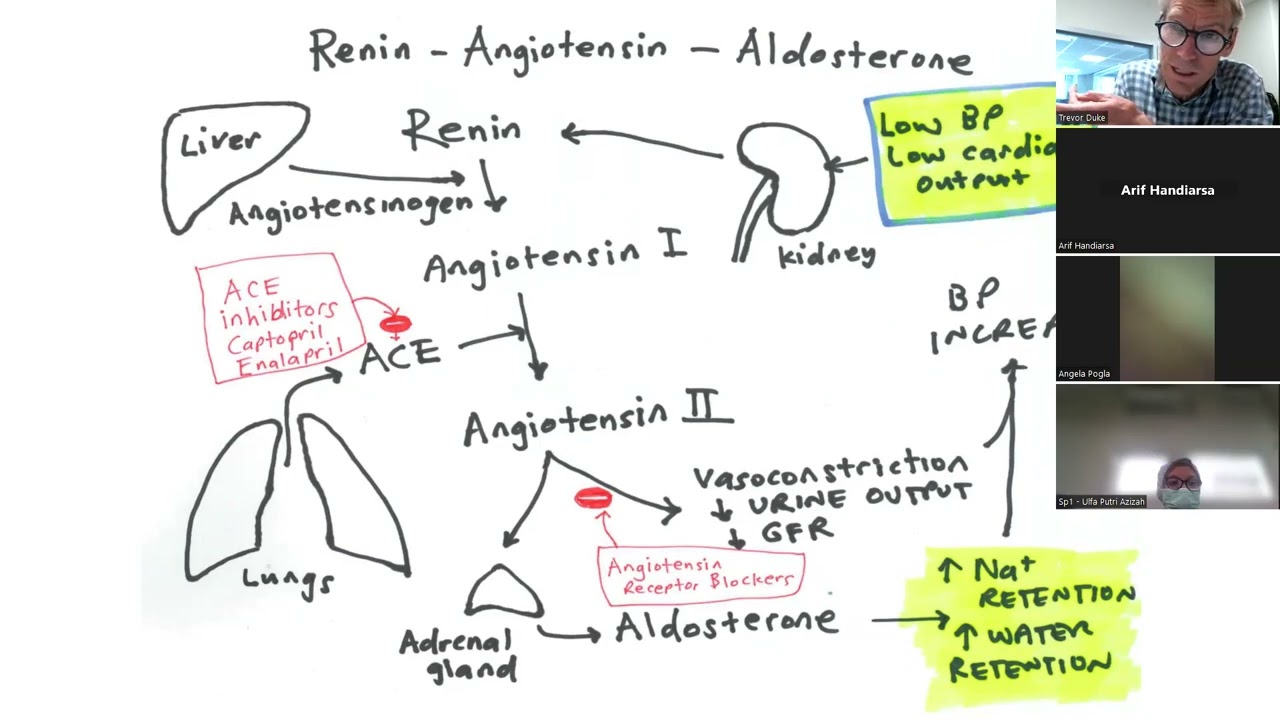 Renin - Angiotensin - Aldosterone
Liver
Renin
Angiotensinogen
Low BP
Low cardio
output
kidney
Angiotensin I
ACE
inhibitors
Captopril
Enalapril
ACE
BP
INCREA
Angiotensin II
Vasoconstriction
↓ URINE OUTPUT
↓ GFR
Lungs
Angiotensin
Receptor Blockers
Adrenal
gland
Aldosterone
↑ Na+
RETENTION
↑ WATER
RETENTION
Trevor Duke
Arif Handiarsa
Arif Handiarsa
Angela Pogla
Sp1 - Ulfa Putri Azizah